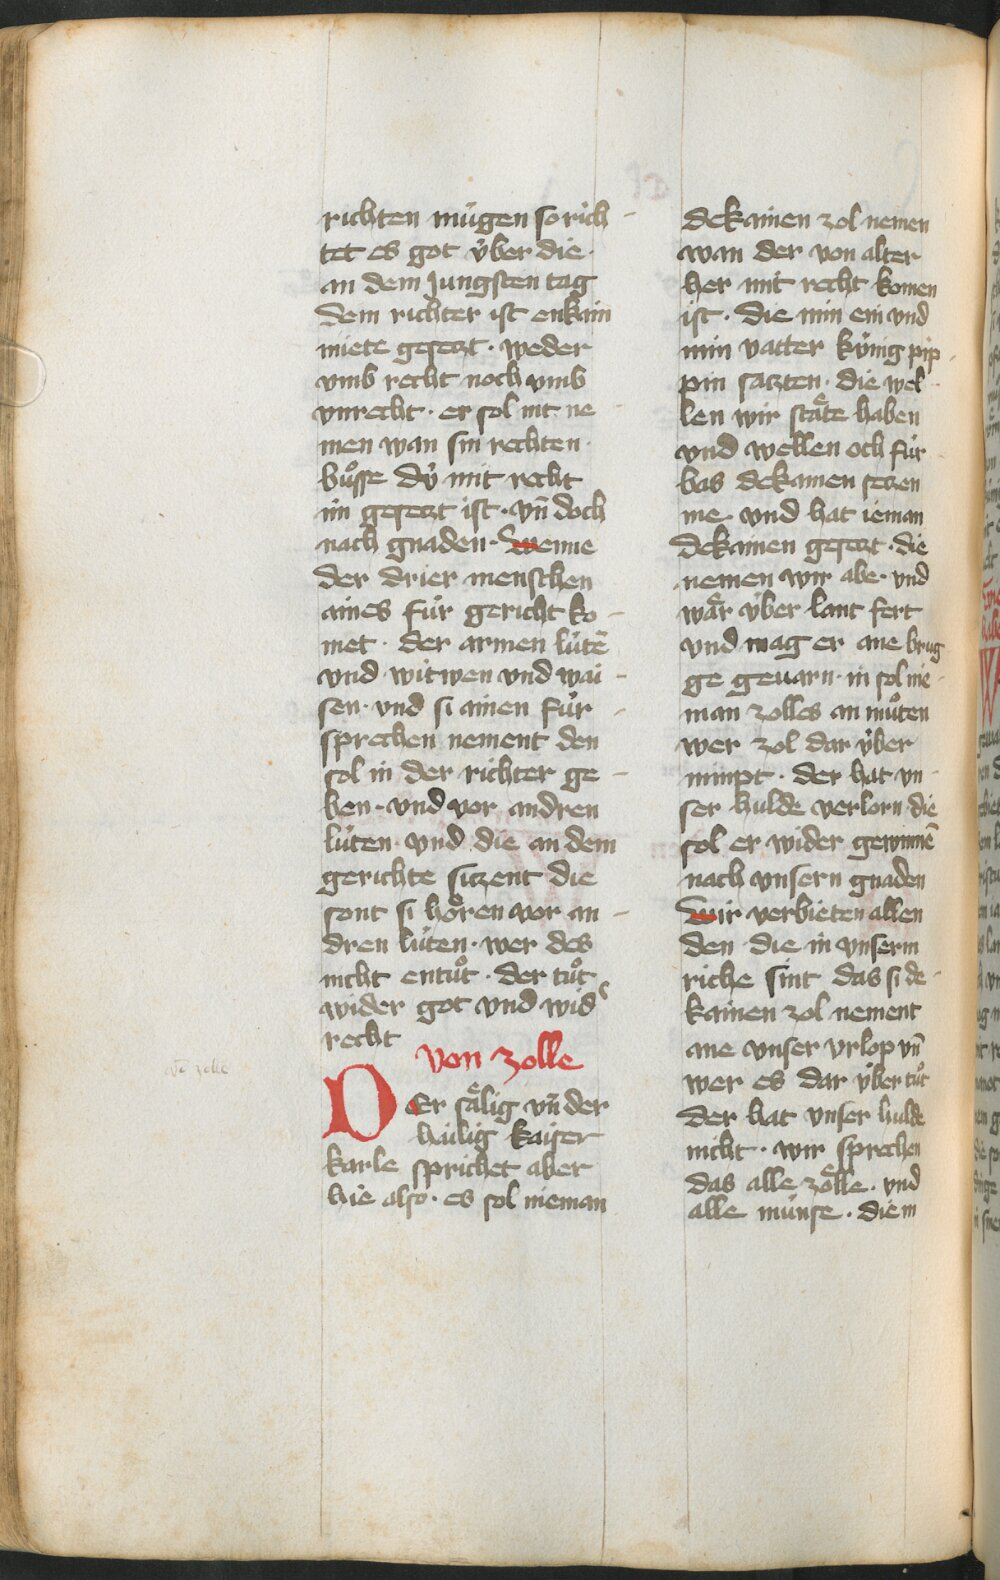 richten mugen so rich-
tet es got v̍ber die·
an dem Jungsten tag
dem richter ist enkain
miete gesetzt · weder
vmb recht noch vmb
vnrecht · er sol nit ne-
men wan sin rechten·
bůsse dv̍ mit recht
im gesetzt ist · vn̄ doch
nach gnaden · wenne
der drier menschen
aines fu̍r gericht ko-
met · der armen lu̍tē
vnd witwen vnd wai-
sen · vnd si ainen fu̍r-
sprechen nement den
sol in der richter ge-
ben · vnd vor andren
lu̍ten · vnd die an dem
gerichte sitzent die
sont si hoͤren vor an-
dren lu̍ten · wer des
nicht entůt · der tůt
wider got vnd wid͛
recht
von zolle
vō zolle
DEr saͤlig vn̄ der
hailig kaiser
karle sprichet aber
hie also · es sol nieman
dekainen zol nemen
wan der von alter
her mit recht komen
ist · die min eni vnd
min vatter ku̍nig pip-
pin satzten · die wel-
len wir staͤte haben
vnd wellen och fu̍r
bas dekainen setzen
me · vnd hat ieman
dekainen gesetzt · die
nemen wir abe · vnd
waͤr v̍ber lant fert
vnd mag er ane brug
ge geuarn · in sol nie-
man zolles an můten
wer zol dar v̍ber
nimpt · der hat vn-
ser hulde verlorn · die
sol er wider gewinnē
nach vnsern gnaden
wir verbieten allen
den · die in vnserm
riche sint das si de-
kainen zol nement
ane vnser vrlop vn̄
wer es dar v̍ber tůt
der hat vnser hulde
nicht · wir sprechen
das alle zoͤlle · vnd
alle mu̍nse · die in